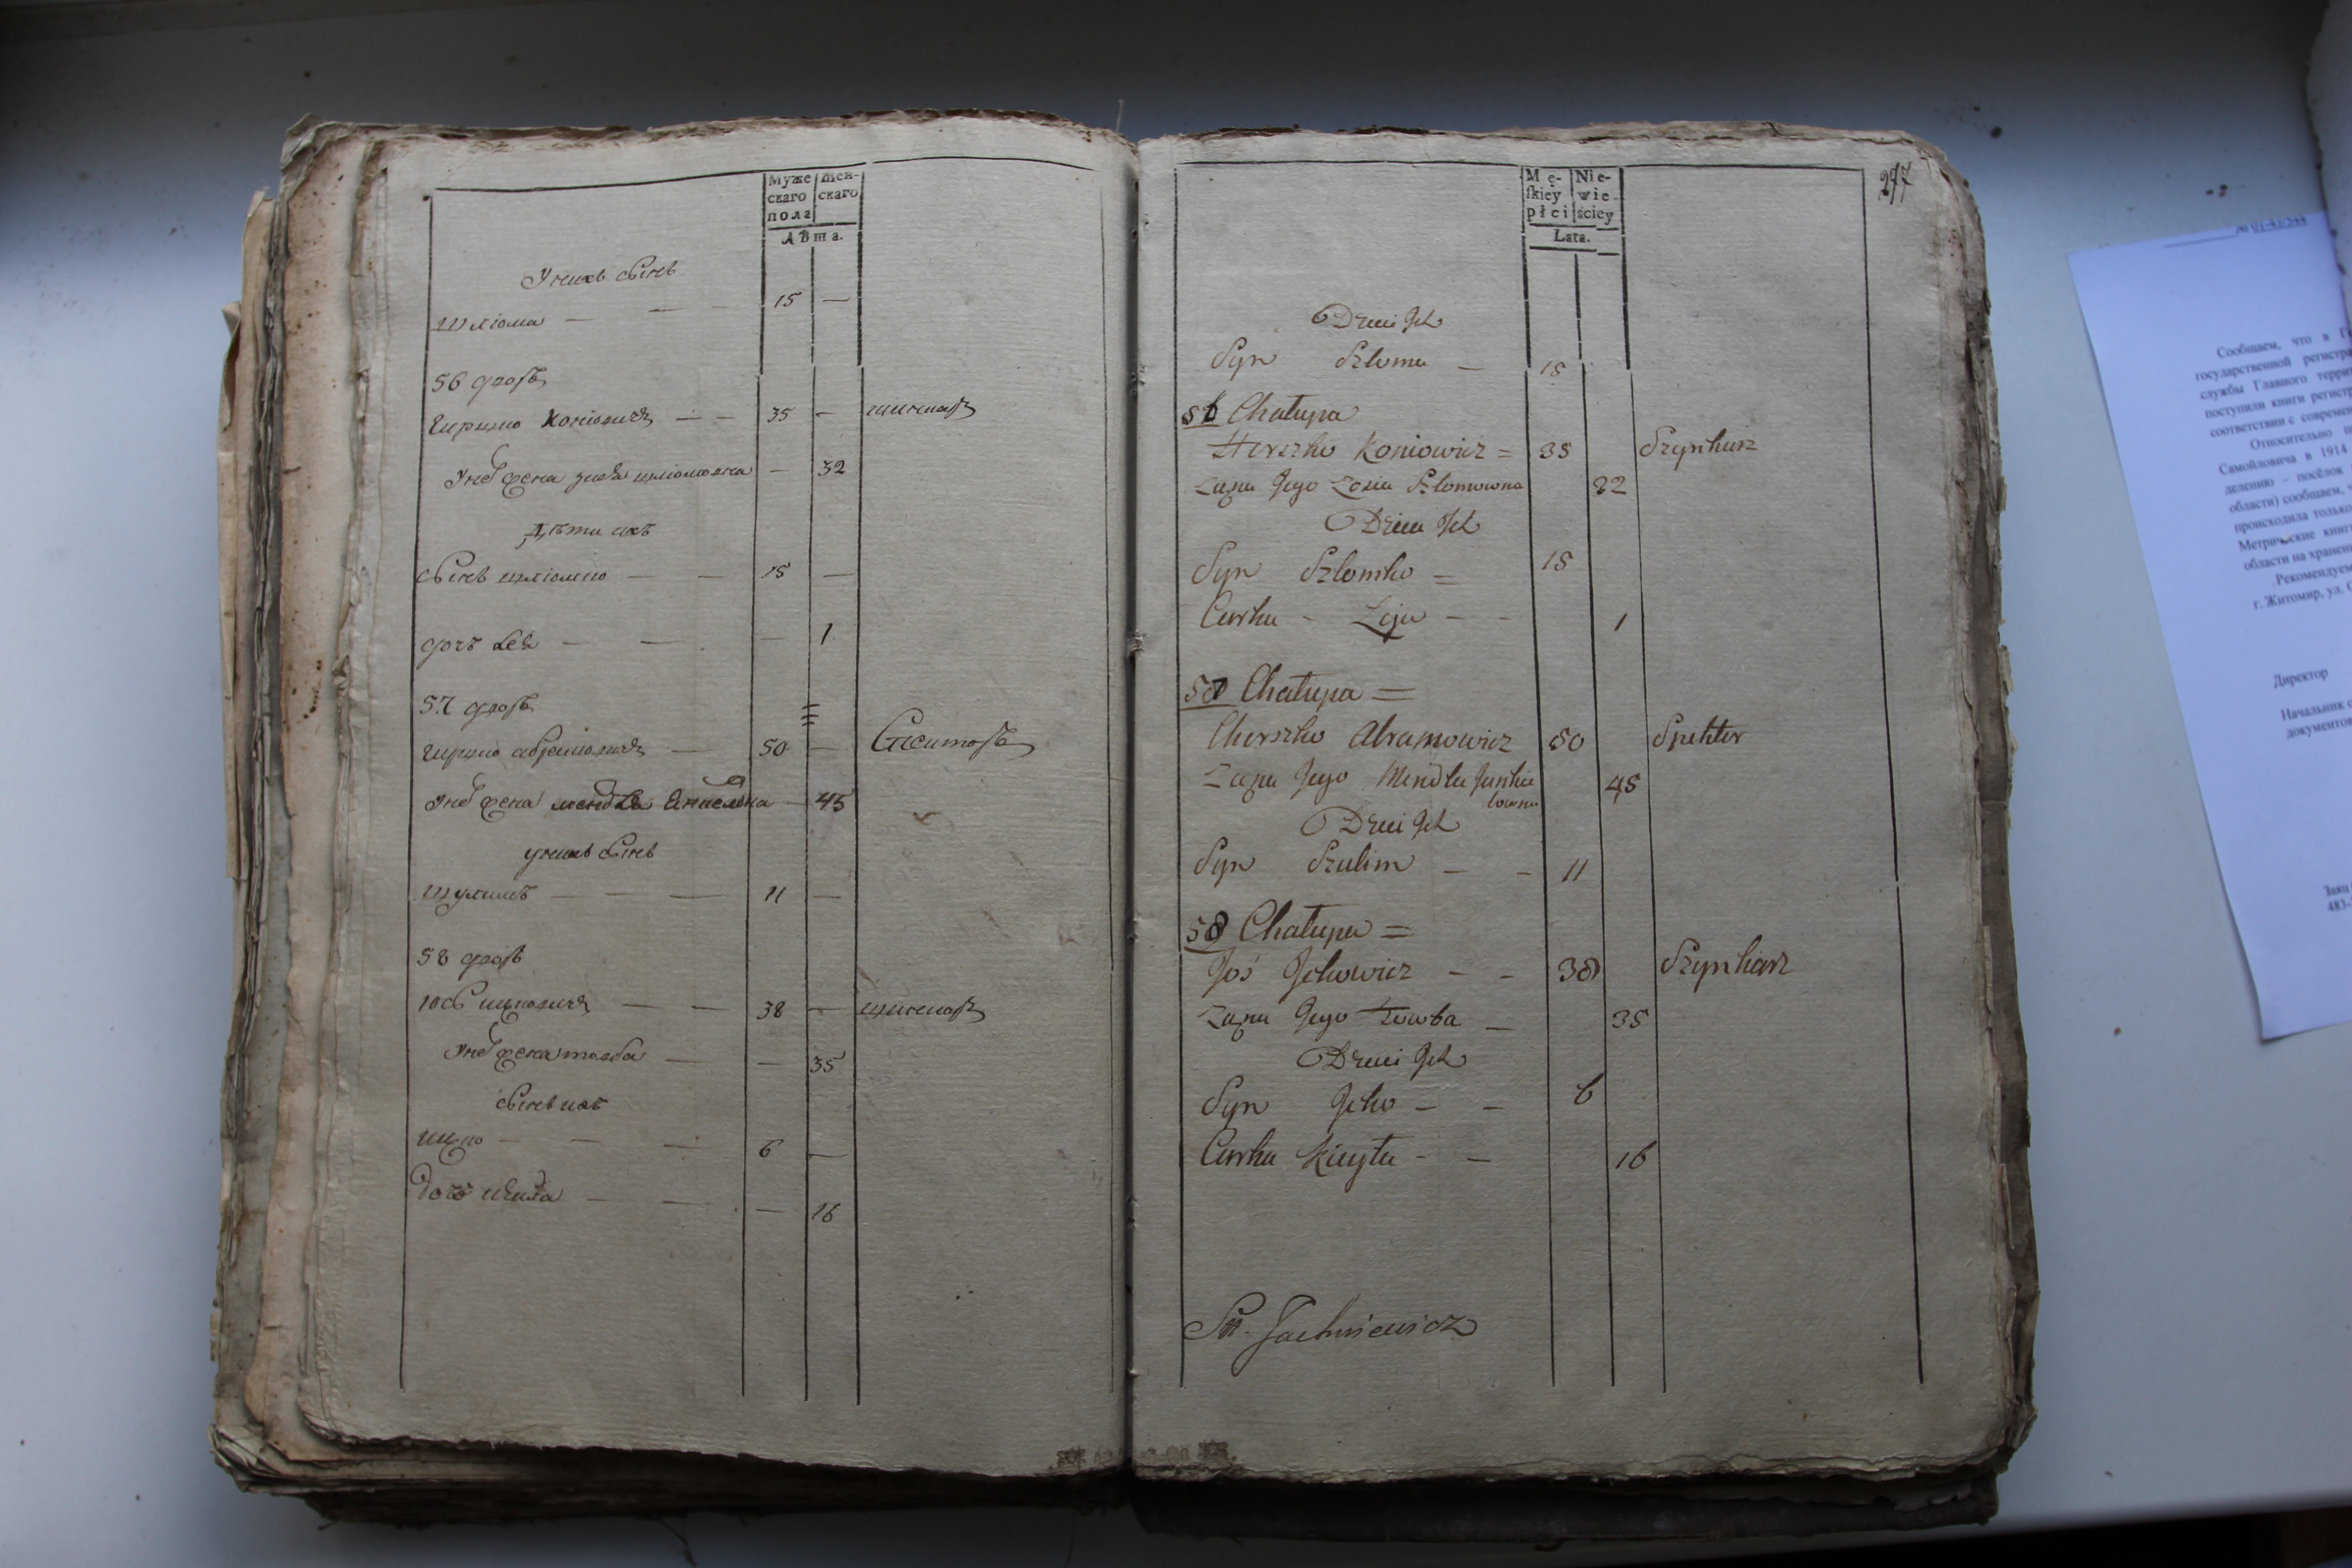 Муже
скаго
пола
Жен-
скаго
Лѣта.
У нихъ сынъ
Шліома — — 15 —
56 дворъ
Гершко Коніовичъ — — 35 — шинкаръ
У него жена Зося Шліомовна — 32
Дѣти ихъ
Сынъ Шліомко — — 15 —
дочь Лея — — — 1
57 дворъ
Гершко Абрамовичъ — 50 —
У него жена Мендля — 45
у нихъ сынъ
Шулимъ — — — 11 —
58 дворъ
Іось Ицковичъ — — 38 — шинкаръ
У него жена Товба — — 35
Сынъ ихъ
Ицко — — — 6 —
дочь — — — 16
Mę-
skiey
płci
Nie-
wie-
ściey
Lata.
247
Dzieci Ich
Syn Szloma — 15
56 Chałupa
Herszko Koniowicz = 35 Szynkarz
Żona Jego Zosia Szlomowna 32
Dzieci Ich
Syn Szlomko = 15
Curka - Leja - - 1
57 Chałupa =
Cherszko Abramowicz 50 Spekter
Żona Jego Mendla Jankie
lowna 45
Dzieci Ich
Syn Szulim — - 11
58 Chałupa =
Joś Ickowicz — - 38 Szynkarz
Żona Jego Towba — 35
Dzieci Ich
Syn Icko — — 6
Curka - — 16
Jachniewicz
Сообщаем, что в
государственной
службы Главного
поступили книги
соответствии с
Относительно
Самойловича в 1914
делению – посёлок
области) сообщаем,
происходила только
Метрические
области на хранен
Рекомендуем
г. Житомир, ул.
Директор
Начальник